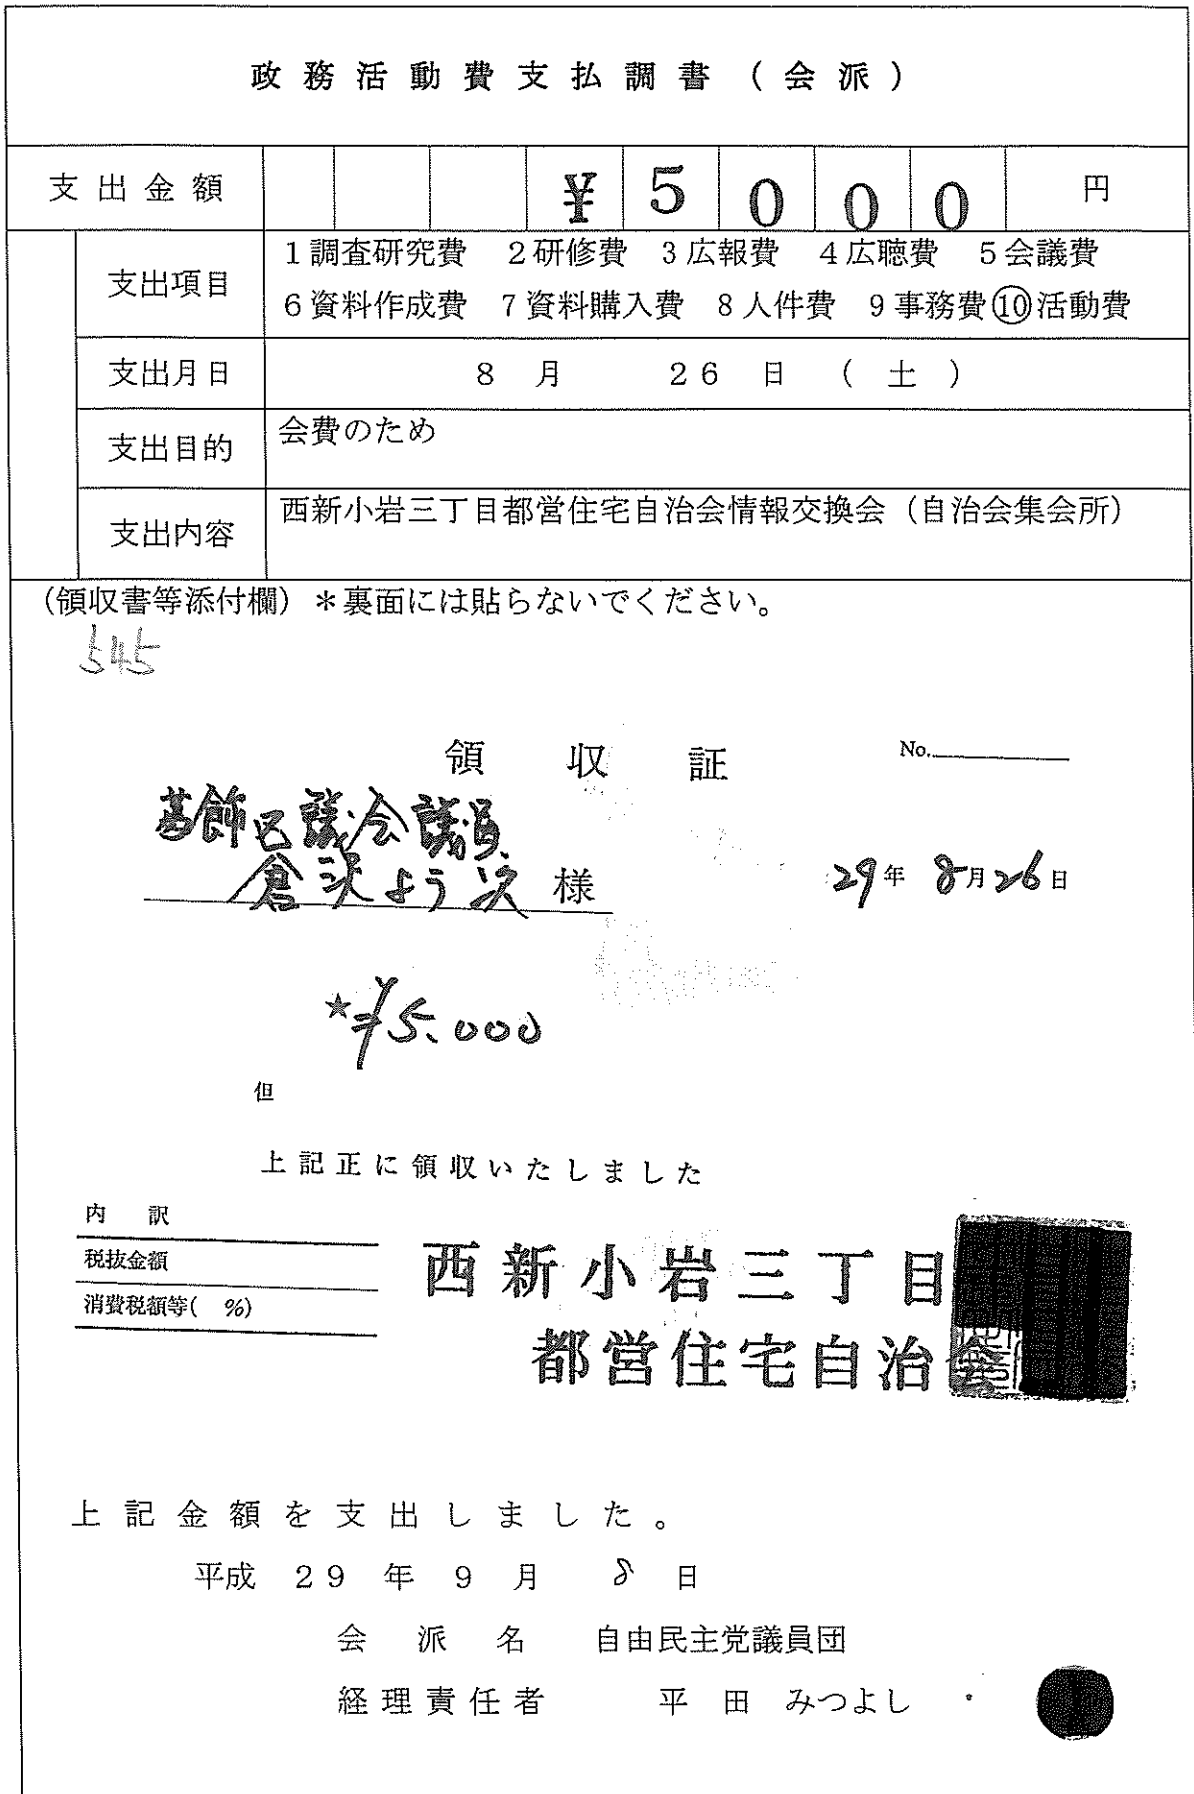 政務活動費支払調書（会派）
支出金額 ￥5000 円
支出項目 1調査研究費 2研修費 3広報費 4広聴費 5会議費
6資料作成費 7資料購入費 8人件費 9事務費 ⑩活動費
支出月日 8月 26日（土）
支出目的 会費のため
支出内容 西新小岩三丁目都営住宅自治会情報交換会（自治会集会所）
（領収書等添付欄）＊裏面には貼らないでください。
545
領収証 No.
葛飾区議会議員
倉沢よう次 様 29年 8月26日
★¥5.000
但
上記正に領収いたしました
内訳
税抜金額
消費税額等( %)
西新小岩三丁目
都営住宅自治会
上記金額を支出しました。
平成 29年 9月 8日
会派名 自由民主党議員団
経理責任者 平田 みつよし